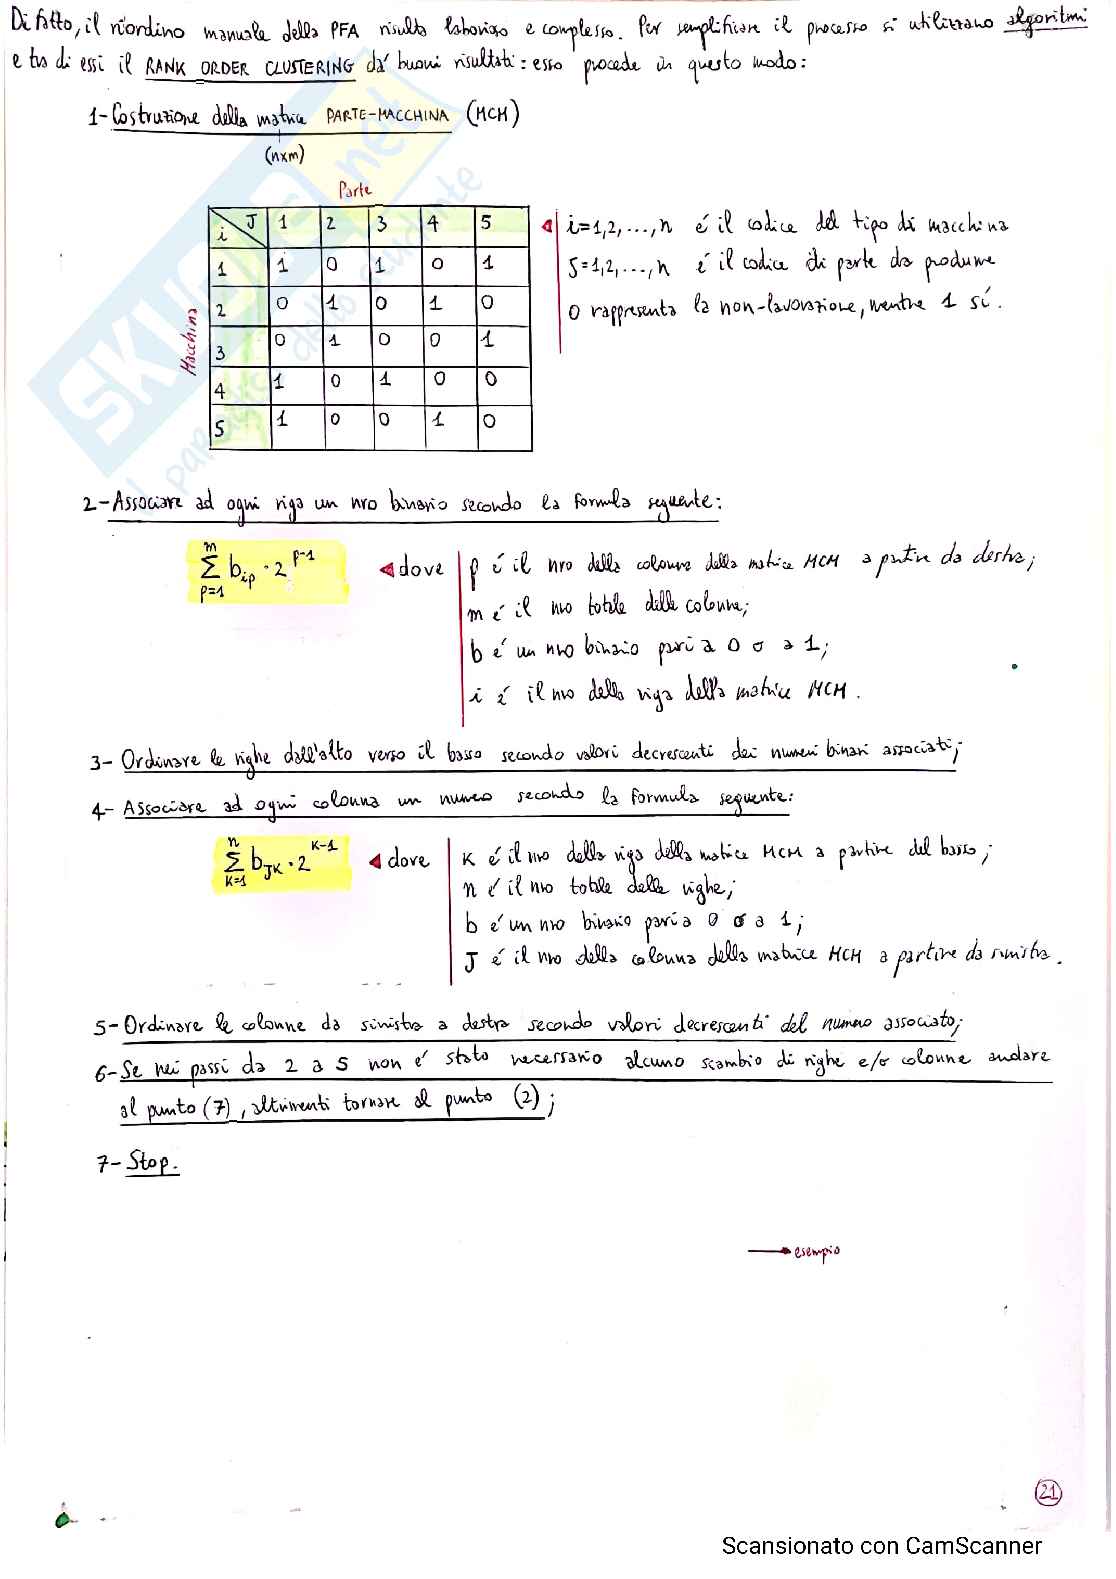 Di fatto, il riordino manuale della PFA risulta laborioso e complesso. Per semplificare il processo si utilizzano algoritmi
e tra di essi il RANK ORDER CLUSTERING dà buoni risultati: esso procede in questo modo:
1- Costruzione della matrice PARTE-MACCHINA (MCM)
(n×m)
Parte
i J 1 2 3 4 5
1 1 0 1 0 1
2 0 1 0 1 0
3 0 1 0 0 1
4 1 0 1 0 0
5 1 0 0 1 0
Macchina
i=1,2,...,n é il codice del tipo di macchina
S=1,2,...,n é il codice di parte da produrre
0 rappresenta la non-lavorazione, mentre 1 sí.
2- Associare ad ogni riga un nro binario secondo la formula seguente:
m
Σ b_ip · 2^(p-1)
p=1
dove
p é il nro della colonna della matrice MCM a partire da destra;
m é il nro totale delle colonne;
b é un nro binario pari a 0 o a 1;
i é il nro della riga della matrice MCM.
3- Ordinare le righe dall'alto verso il basso secondo valori decrescenti dei numeri binari associati;
4- Associare ad ogni colonna un numero secondo la formula seguente:
n
Σ b_JK · 2^(K-1)
K=1
dove
K é il nro della riga della matrice MCM a partire del basso;
n é il nro totale delle righe;
b é un nro binario pari a 0 o a 1;
J é il nro della colonna della matrice MCM a partire da sinistra.
5- Ordinare le colonne da sinistra a destra secondo valori decrescenti del numero associato;
6- Se nei passi da 2 a 5 non é stato necessario alcuno scambio di righe e/o colonne andare
al punto (7), altrimenti tornare al punto (2);
7- Stop.
esempio
21
Scansionato con CamScanner